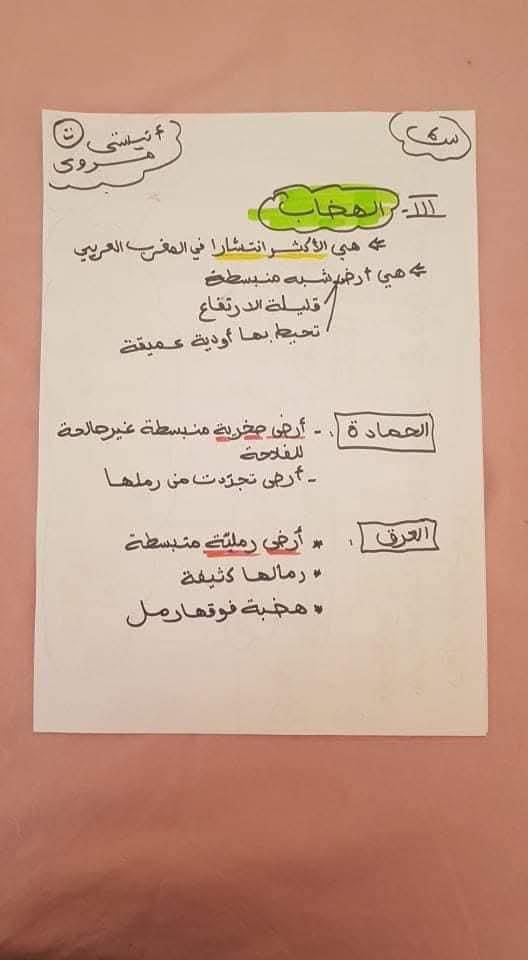 س6
أنيستي
مروى
III- الهضاب
← هي الأكثر انتشارا في المغرب العربي
← هي أرض شبه منبسطة
قليلة الارتفاع
تحيط بها أودية عميقة
الحمادة : - أرض صخرية منبسطة غير صالحة
للفلاحة
- أرض تجرّدت من رملها
العرق : * أرض رمليّة منبسطة
* رمالها كثيفة
* هضبة فوقها رمل